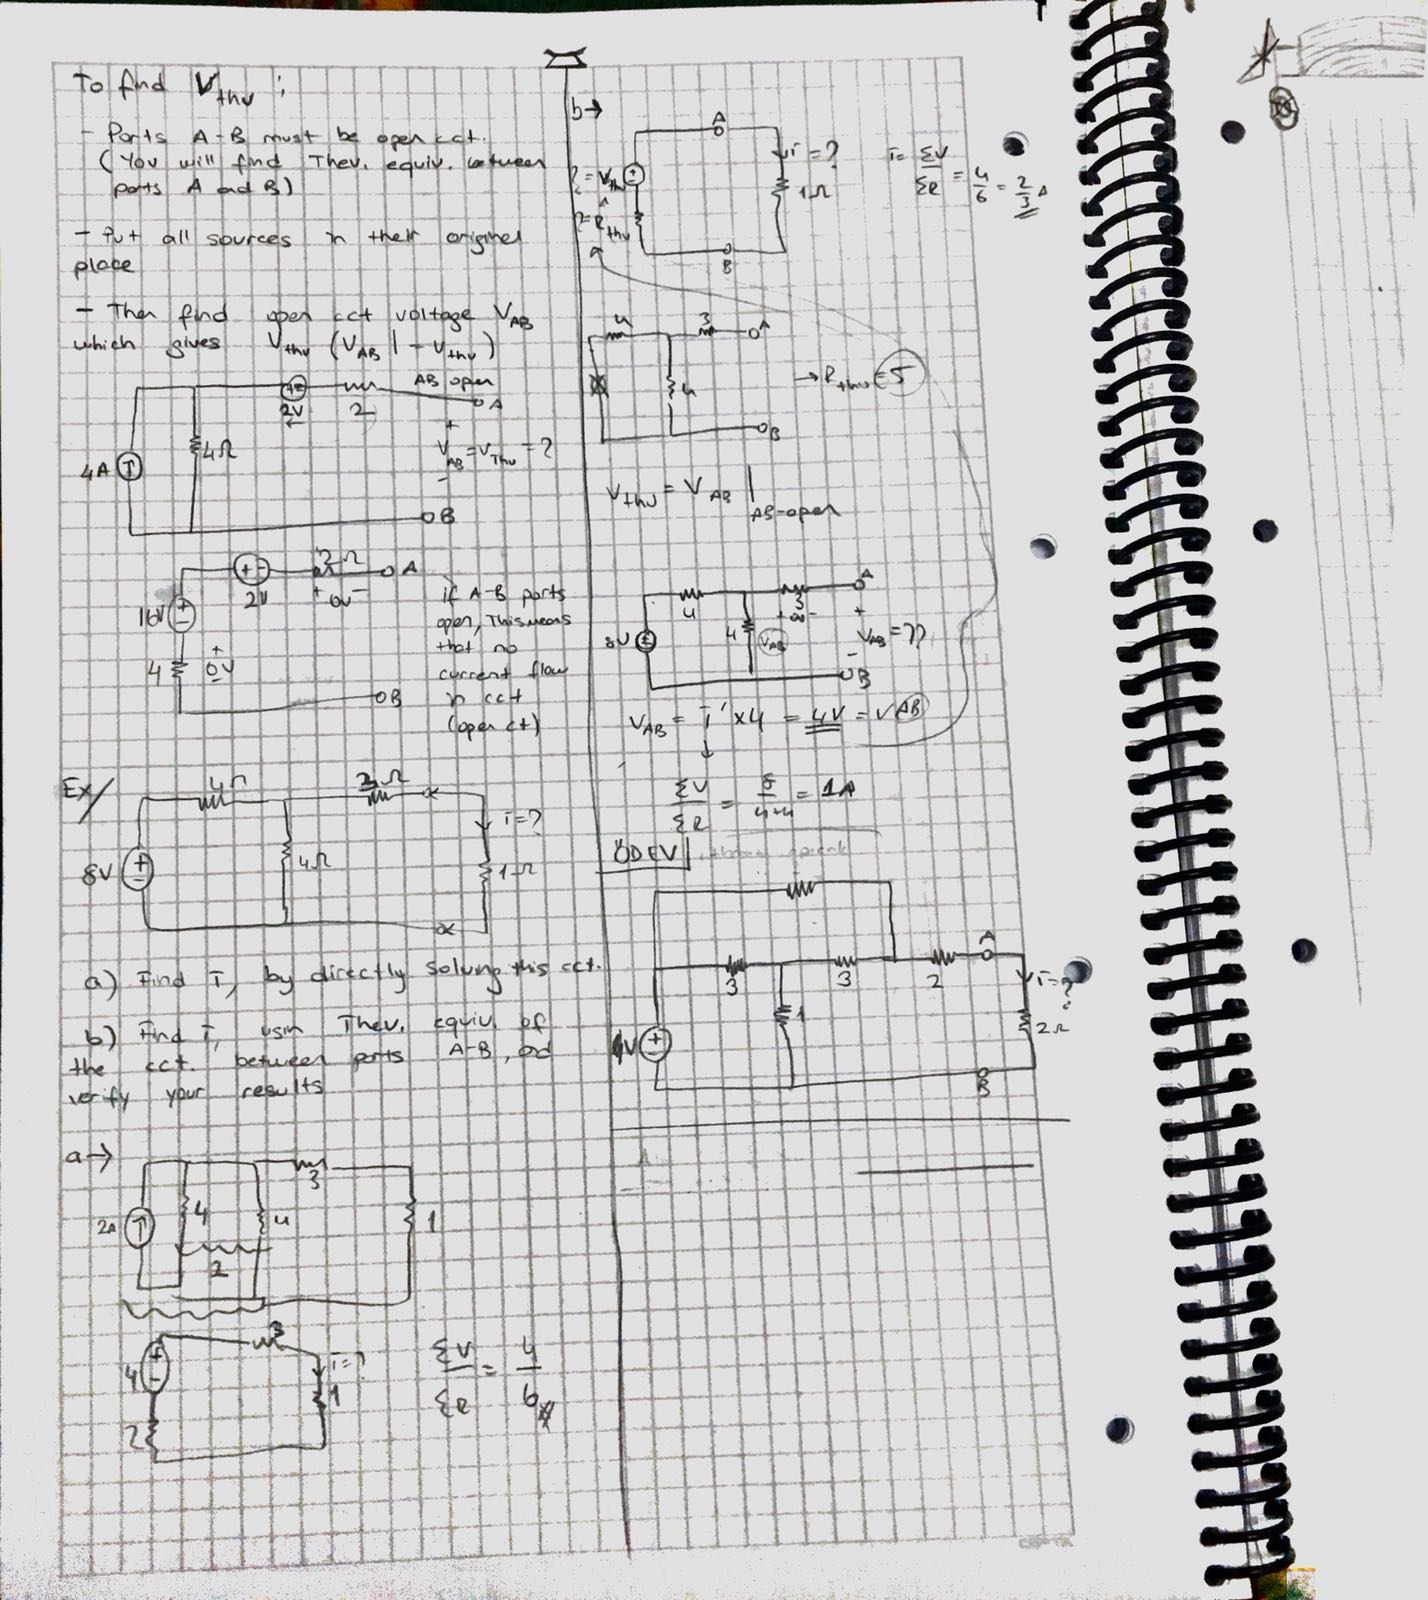 To find Vthv ;
- Ports A-B must be open cct.
(You will find Thev. equiv. between
ports A and B)
- Put all sources in their original
place
- Then find open cct voltage VAB
which gives Vthv (VAB | = Vthv)
AB open
2V
2
A
4A
4Ω
+
VAB = VThv = ?
-
B
2V
3Ω
A
+ 0V -
16V
4
+
0V
B
if A-B ports
open, This means
that no
current flow
in cct
(open ct)
Ex/
4Ω
3Ω
i=?
8V
4Ω
1Ω
a) Find I, by directly solving this cct.
b) Find I, usin Thev. equiv. of
the cct. between ports A-B, and
verify your results
a→
3
2A
4
4
1
2
3
4
i=?
1
2
ΣV
ΣR
=
4
6
b→
A
i=?
?=Vthv
1Ω
?=Rthv
B
i= ΣV
ΣR = 4
6 = 2
3 A
4
3
A
4
→Rthv=5
B
Vthv = VAB |
AB-open
4
3
A
+ 0V -
+
8V
4
VAB
VAB=??
-
B
VAB = i' x4 = 4V = VAB
ΣV
ΣR
= 8
4+4 = 1A
ÖDEV
3
3
2
A
i=?
1
2Ω
V
B